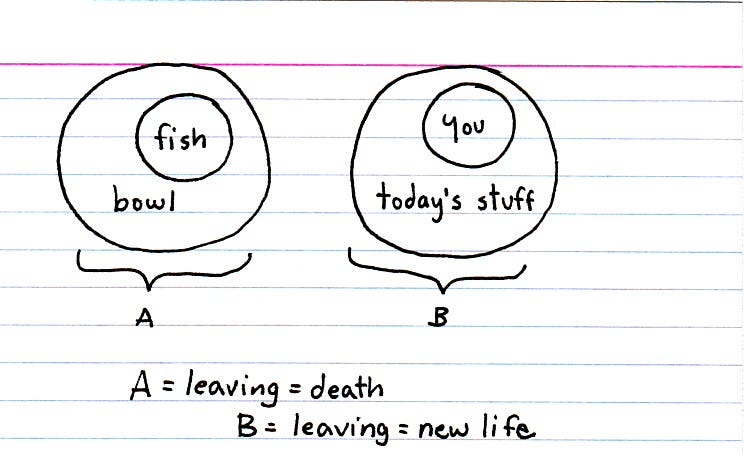 fish
bowl
you
today's stuff
A
B
A = leaving = death
B = leaving = new life